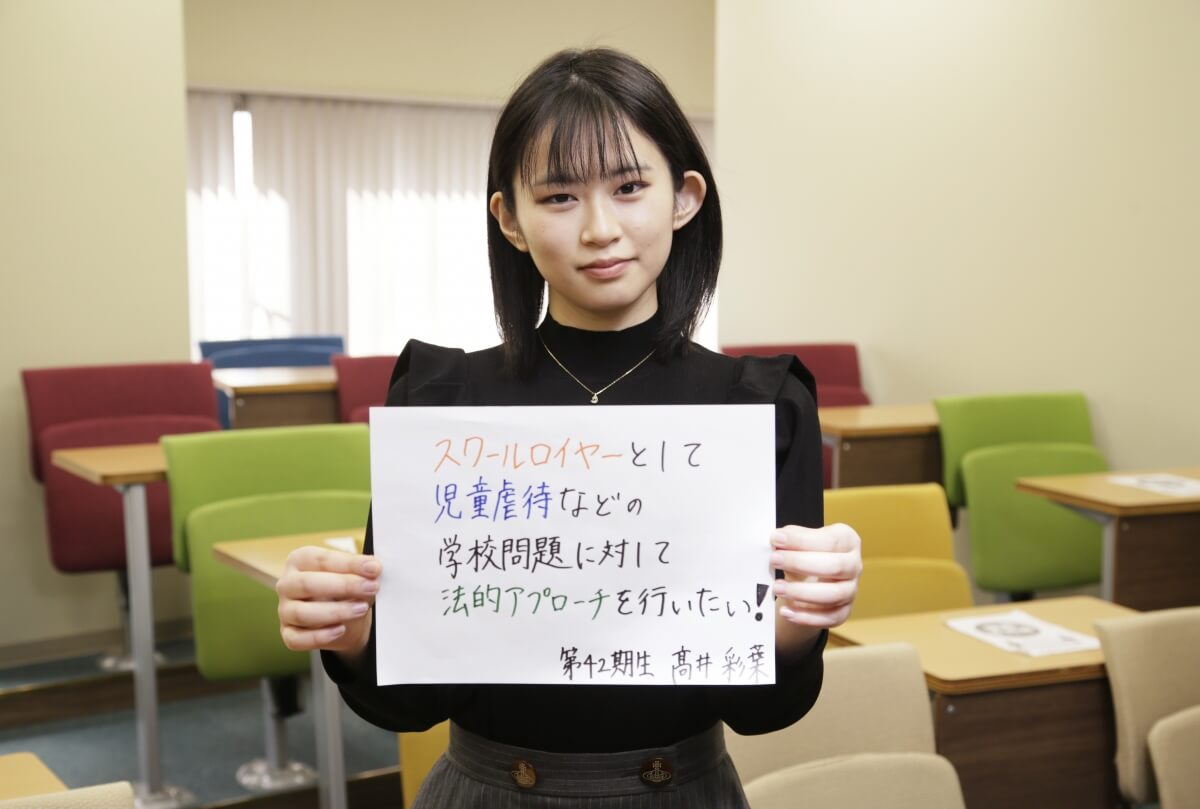 スクールロイヤーとして
児童虐待などの
学校問題に対して
法的アプローチを行いたい！
第42期生 髙井 彩葉